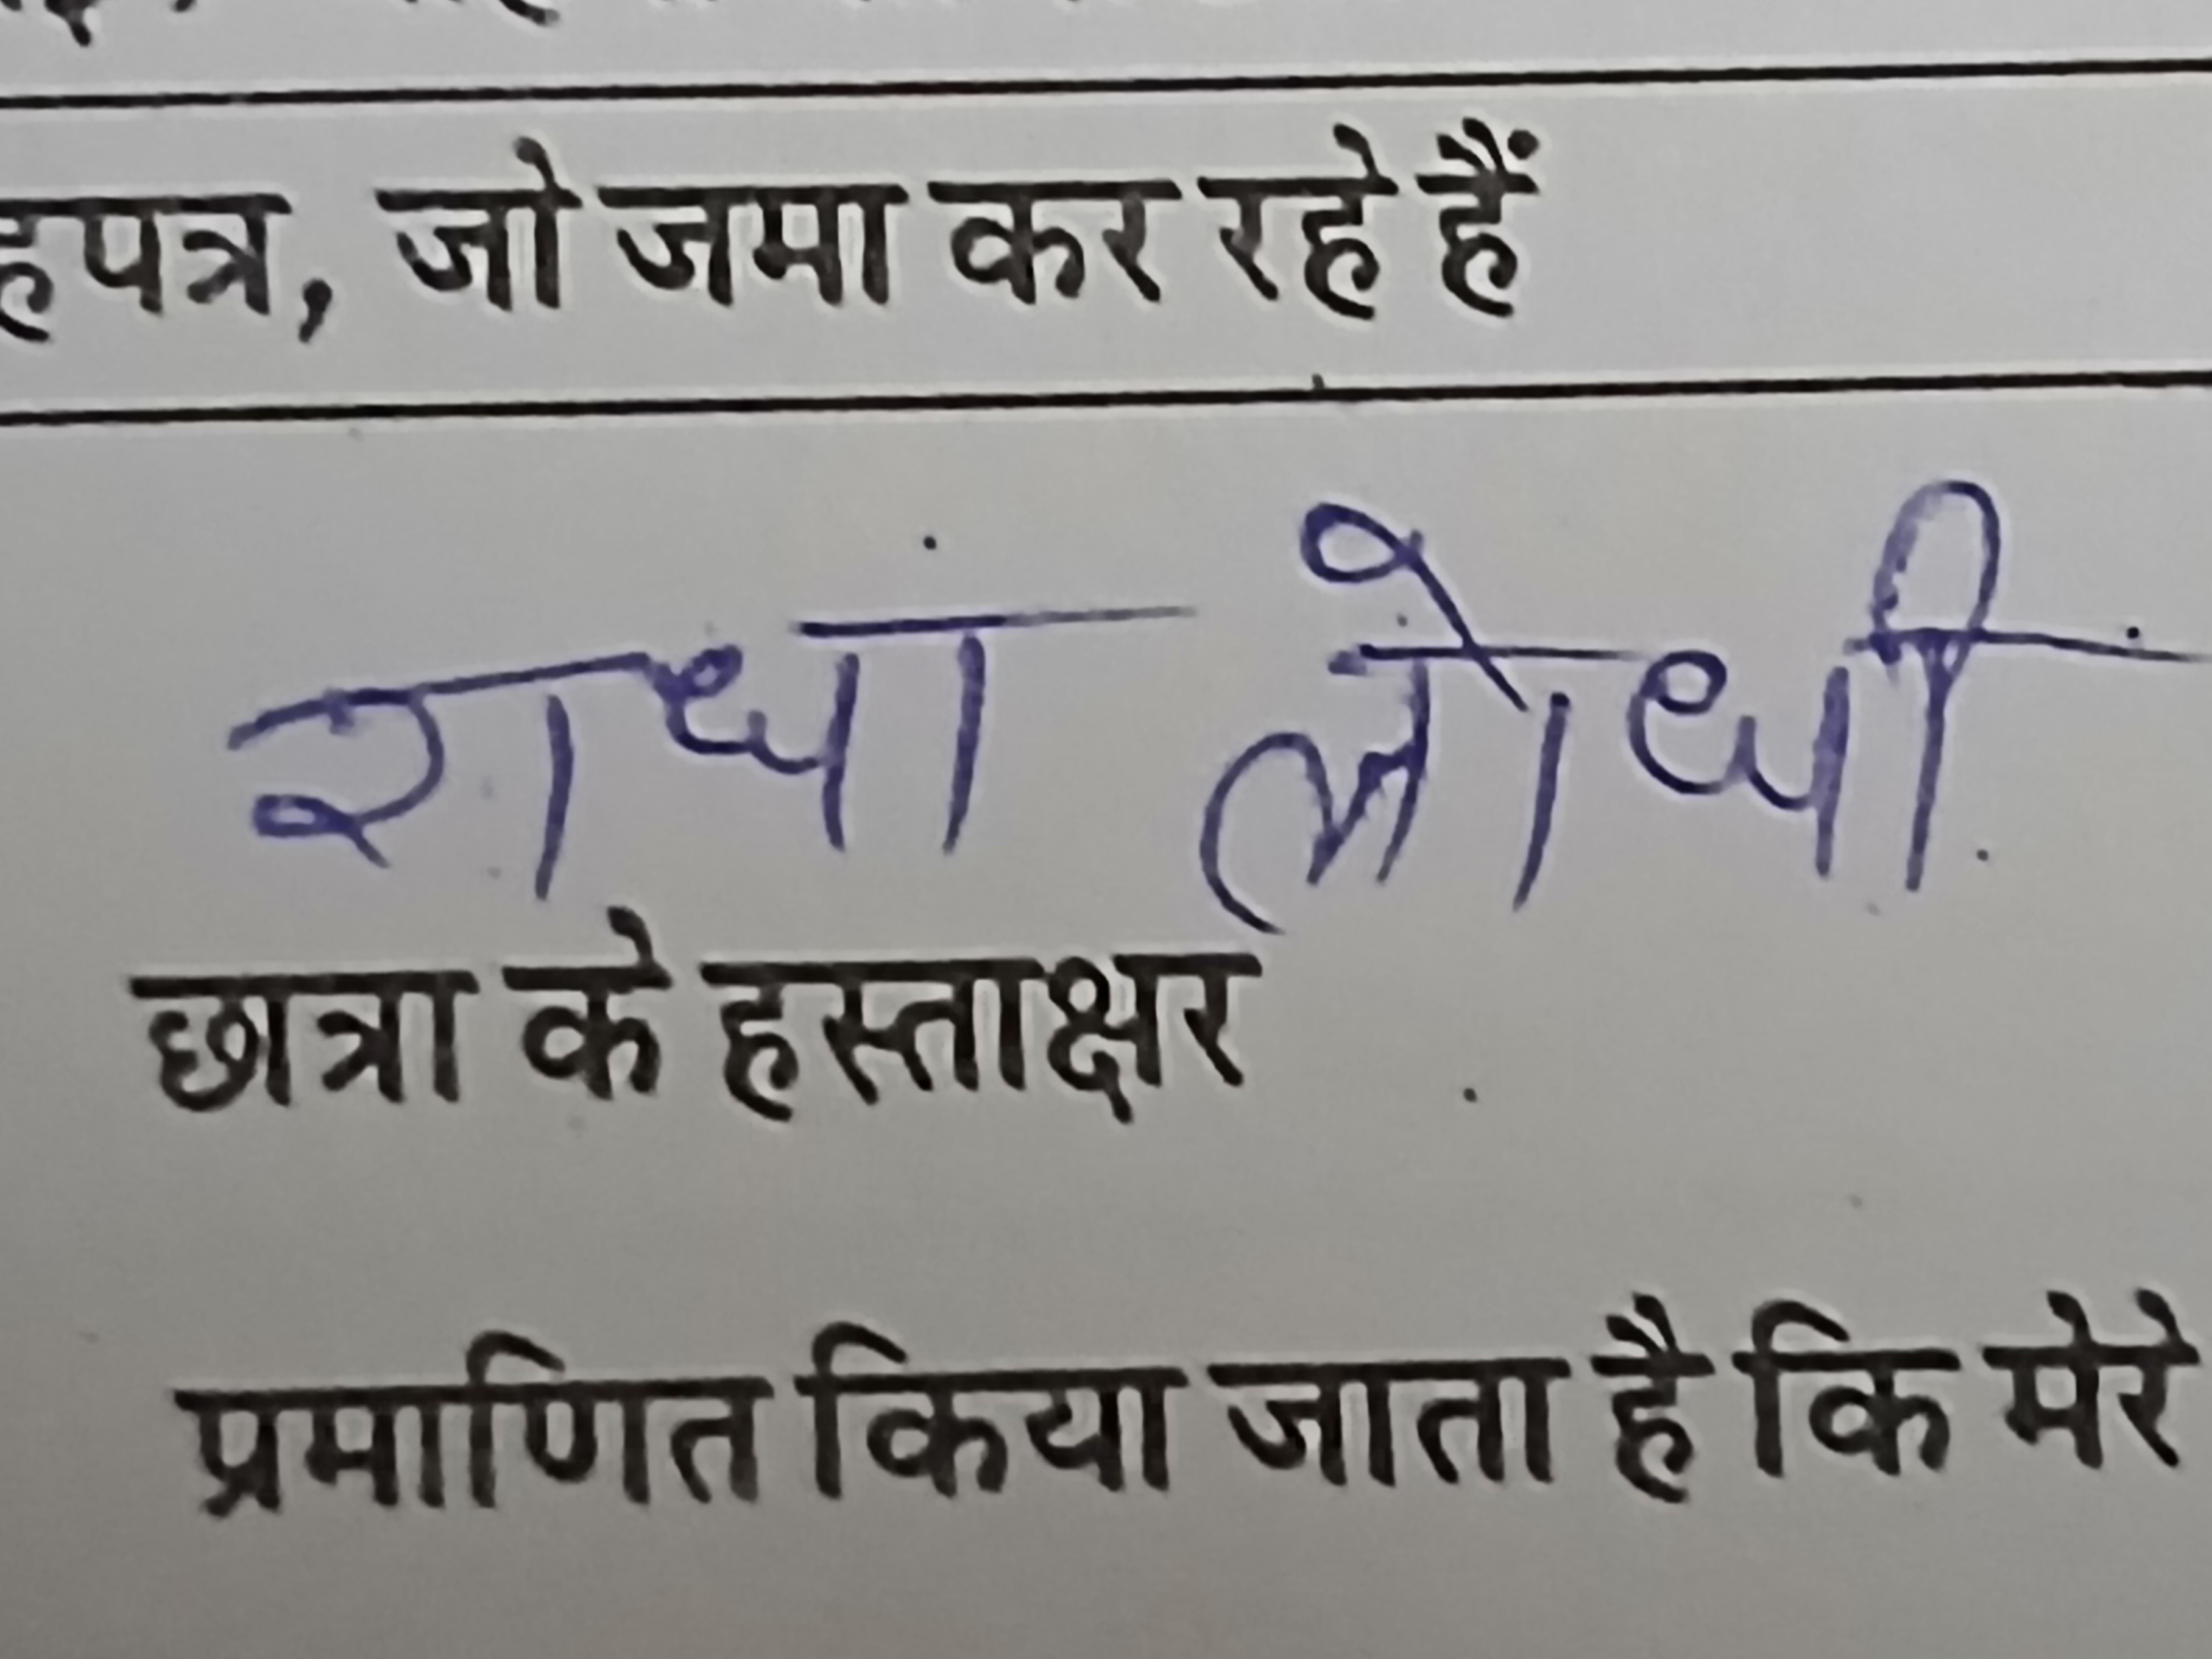 हपत्र, जो जमा कर रहे हैं
राधा लोधी
छात्रा के हस्ताक्षर
प्रमाणित किया जाता है कि मेरे